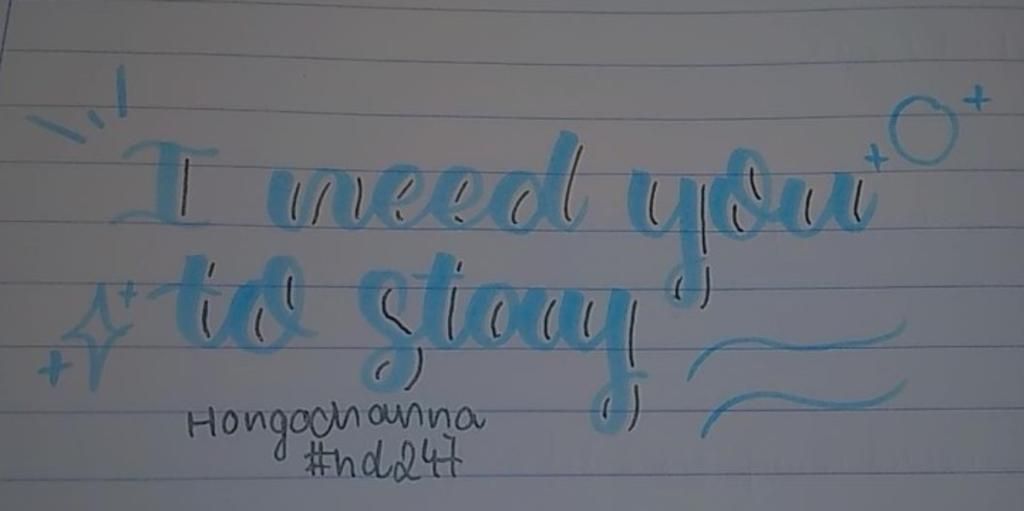 I need you
to stay
Hongochanna
#nd247